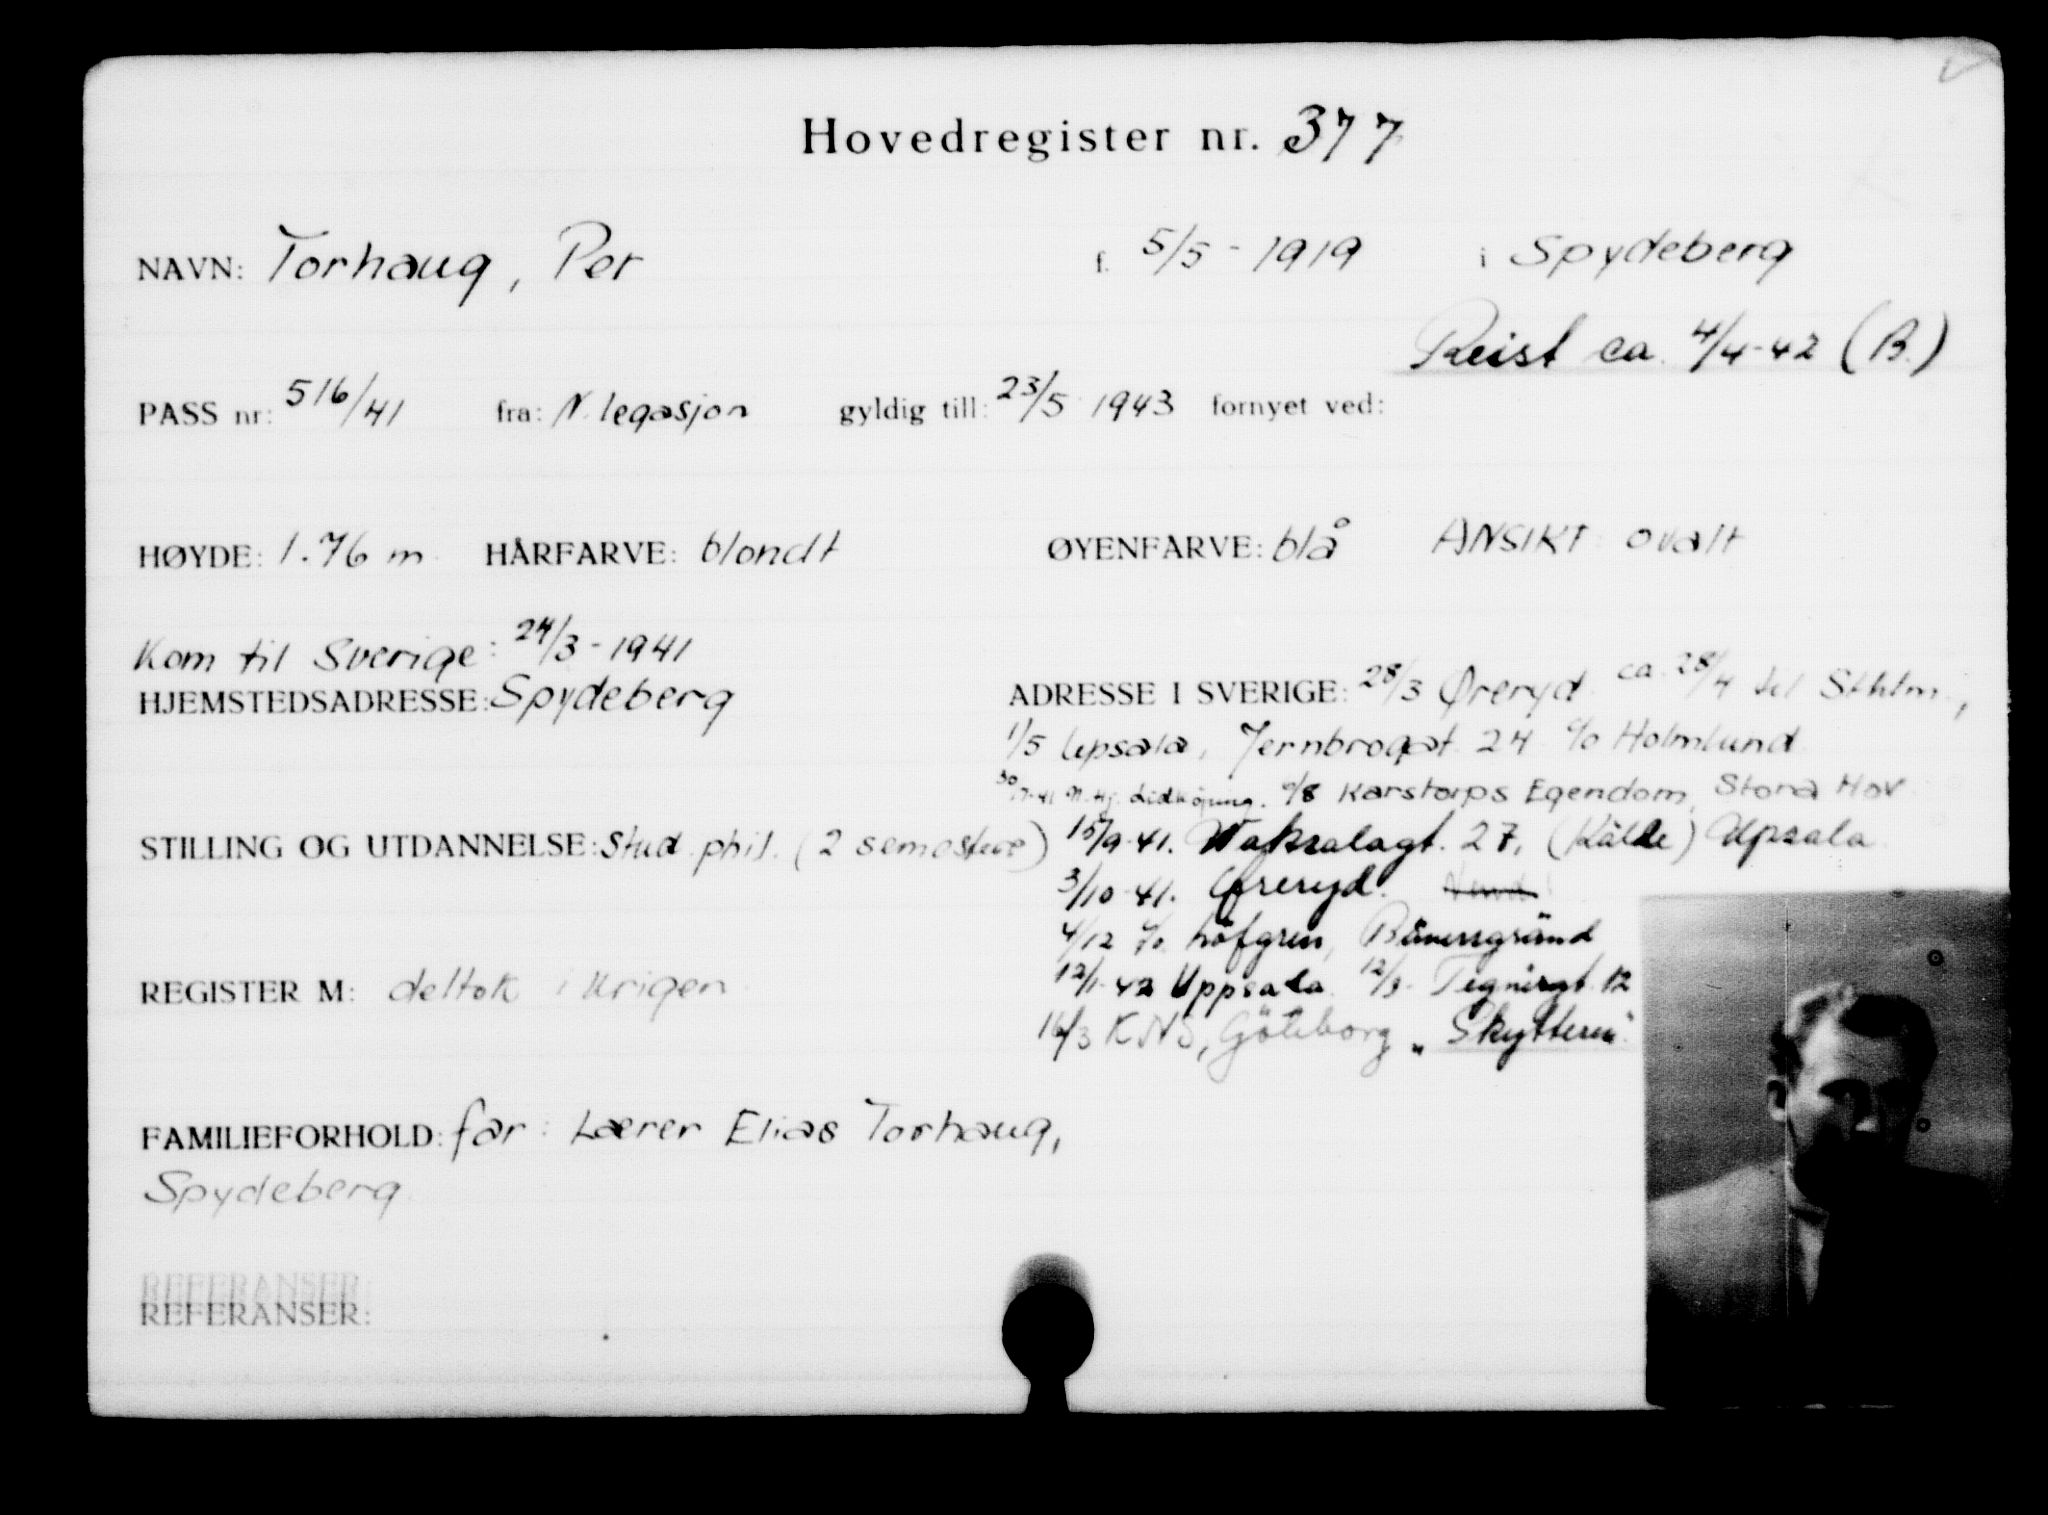 Hovedregister nr. 377
NAVN: Torhaug, Per f. 5/5 - 1919 i Spydeberg
Reist ca. 4/4-42 (B.)
PASS nr: 516/41 fra: N. legasjon gyldig till: 23/5 1943 fornyet ved:
HØYDE: 1.76 m HÅRFARVE: blondt ØYENFARVE: blå ANSIKT: ovalt
Kom til Sverige: 24/3 - 1941
HJEMSTEDSADRESSE: Spydeberg
ADRESSE I SVERIGE: 28/3 Øreryd ca 28/4 til Sthlm.,
1/5 Upsala, Jernbrogat 24 c/o Holmlund
N. Hj. Lidköping. Karstorps Egendom, Stora Hov
STILLING OG UTDANNELSE: Stud. phil. (2 semestere)
15/9-41. Waksalagt. 27, (Kälde) Upsala
3/10-41. Øreryd.
4/12 c/o Löfgren,
12/1-42 Uppsala 12/3- Tegnérgt. 12
REGISTER M: deltok i krigen
16/3 KNS, Göteborg „Skytteren"
FAMILIEFORHOLD: far: Lærer Elias Torhaug,
Spydeberg
REFERANSER:
REFERANSER: